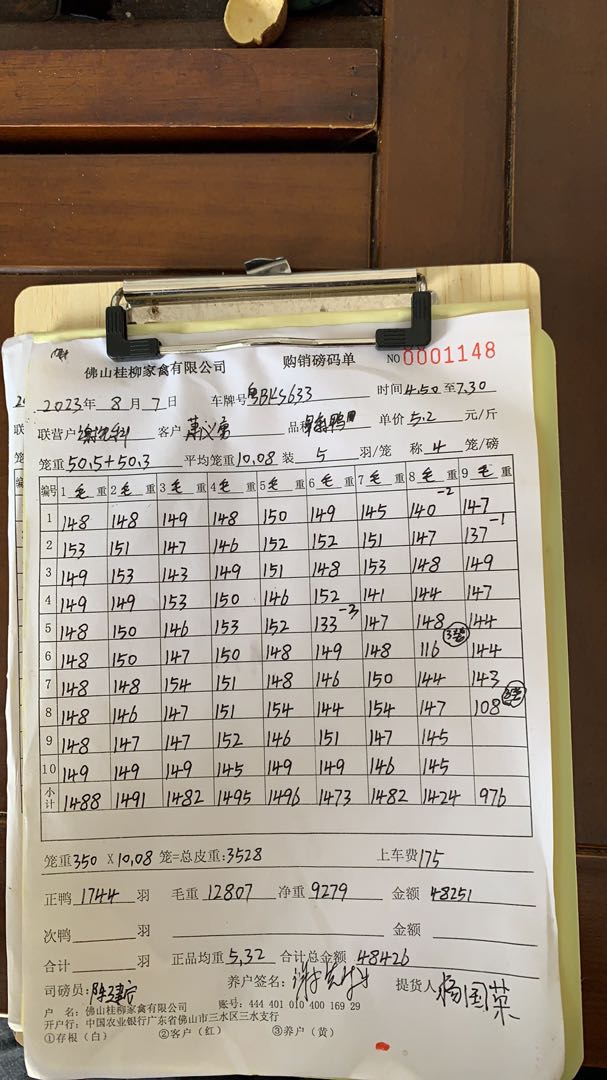 佛山桂柳家禽有限公司 购销磅码单 NO 0001148
2023年 8 月 7 日 车牌号 粤BKS633 时间 4.50 至 7.30
联营户 客户 萧义勇 品种 鸭 单价 5.2 元/斤
笼重 50.5+50.3 平均笼重 10.08 装 5 羽/笼 称 4 笼/磅
编号 1 毛 重 2 毛 重 3 毛 重 4 毛 重 5 毛 重 6 毛 重 7 毛 重 8 毛 重 9 毛 重
1 148 148 149 148 150 149 145 140-2 147
2 153 151 147 146 152 152 151 147 137-1
3 149 153 143 149 151 148 153 148 149
4 149 149 153 150 146 152 141 144 147
5 148 150 146 153 152 133-3 147 148 144
6 148 150 147 150 148 149 148 116 3笼 144
7 148 148 154 151 148 146 150 144 143
8 148 146 147 151 154 144 154 147 108
9 148 147 147 152 146 151 147 145
10 149 149 149 145 149 149 146 145
小计 1488 1491 1482 1495 1496 1473 1482 1424 976
笼重 350 X 10.08 笼=总皮重: 3528 上车费 175
正鸭 1744 羽 毛重 12807 净重 9279 金额 48251
次鸭 羽 金额
合计 羽 正品均重 5.32 合计总金额 48426
司磅员: 陈建宏 养户签名: 提货人 杨国荣
户 名: 佛山桂柳家禽有限公司 账号: 444 401 010 400 169 29
开户行: 中国农业银行广东省佛山市三水区三水支行
①存根（白） ②客户（红） ③养户（黄）